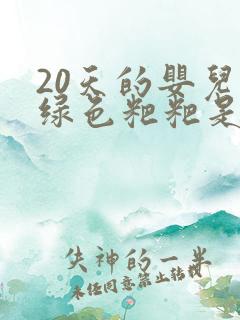 20天的婴儿
绿色粑粑是
失神的一半
未经同意禁止转载